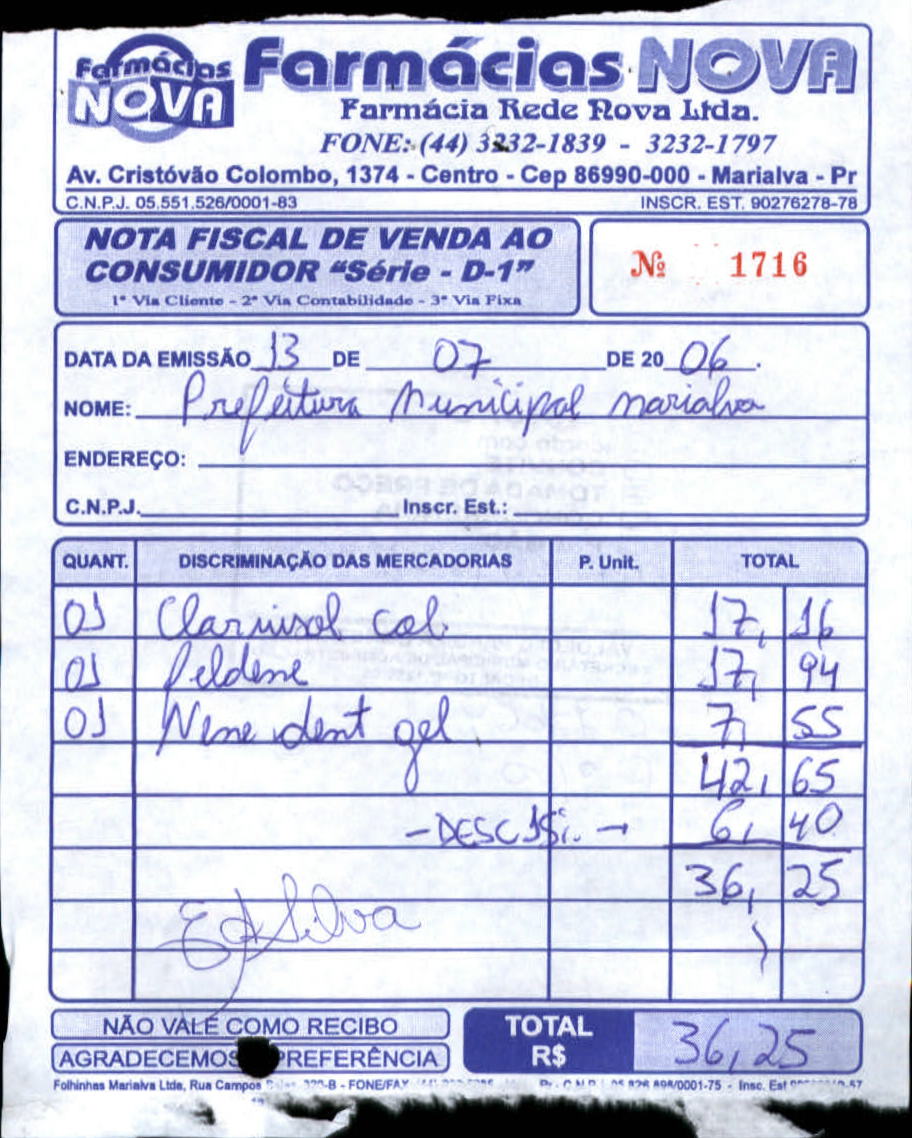 Farmácias NOVA
Farmácias NOVA
Farmácia Rede Nova Ltda.
FONE: (44) 3232-1839 - 3232-1797
Av. Cristóvão Colombo, 1374 - Centro - Cep 86990-000 - Marialva - Pr
C.N.P.J. 05.551.526/0001-83 INSCR. EST. 90276278-78
NOTA FISCAL DE VENDA AO
CONSUMIDOR “Série - D-1”
1ª Via Cliente - 2ª Via Contabilidade - 3ª Via Fixa
Nº 1716
DATA DA EMISSÃO 13 DE 07 DE 20 06.
NOME: Prefeitura Municipal Marialva
ENDEREÇO:
C.N.P.J. Inscr. Est.:
QUANT. DISCRIMINAÇÃO DAS MERCADORIAS P. Unit. TOTAL
01 Col. 17,16
01 Feldene 17,94
01 Nene dent gel 7,55
42,65
- DESC 15%. → 6,40
36,25
Silva
NÃO VALE COMO RECIBO
AGRADECEMOS PREFERÊNCIA
TOTAL
R$ 36,25
Folhinhas Marialva Ltda, Rua Campos 320-B - FONE/FAX